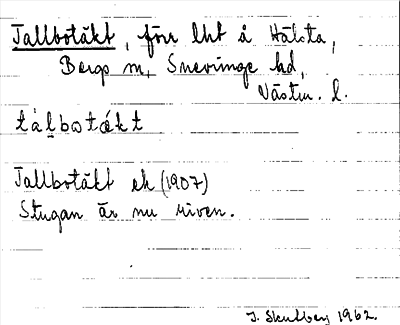 Tallbotäkt, förr lht å Hälsta,
Bergs sn, Snevringe hd,
Västm. l.
tàl̠botǽkt
Tallbotäkt ek (1907)
Stugan är nu riven.
J. Skulberg 1962.